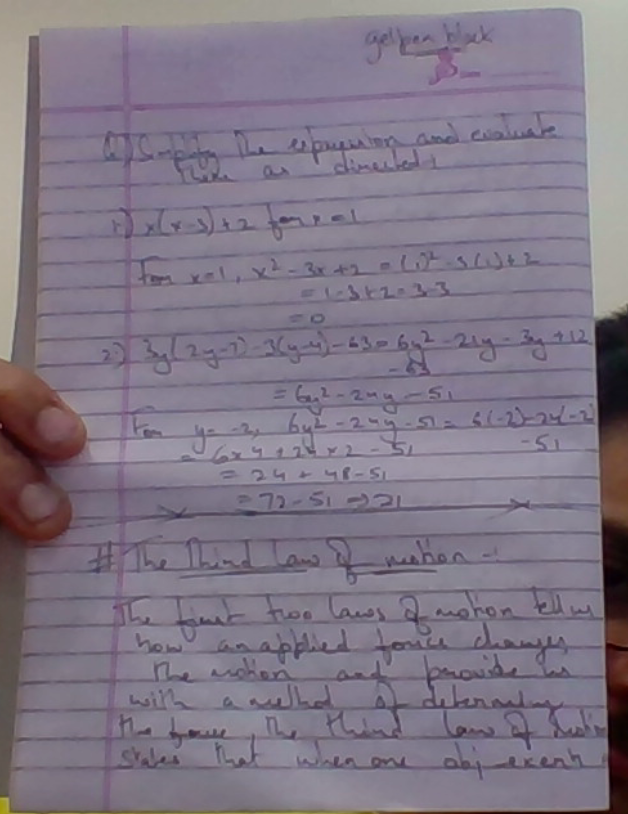 gelpen black
Q) Simplify the expression and evaluate
them as directed:
1) x(x-3)+2 for x=1
For x=1, x²-3x+2 = (1)²-3(1)+2
= 1-3+2=3-3
= 0
2.) 3y(2y-7)-3(y-4)-63=6y²-21y-3y+12
-63
= 6y²-24y-51
For y=-2, 6y²-24y-51= 6(-2)-24(-2)
= 6x4+24x2-51 -51
= 24+48-51
= 72-51 ⇒ 21
# The Third law of motion -:
The first two laws of motion tell us
how an applied force changes
the motion and provide us
with a method of determining
the force, The third law of motion
states that when one obj exert